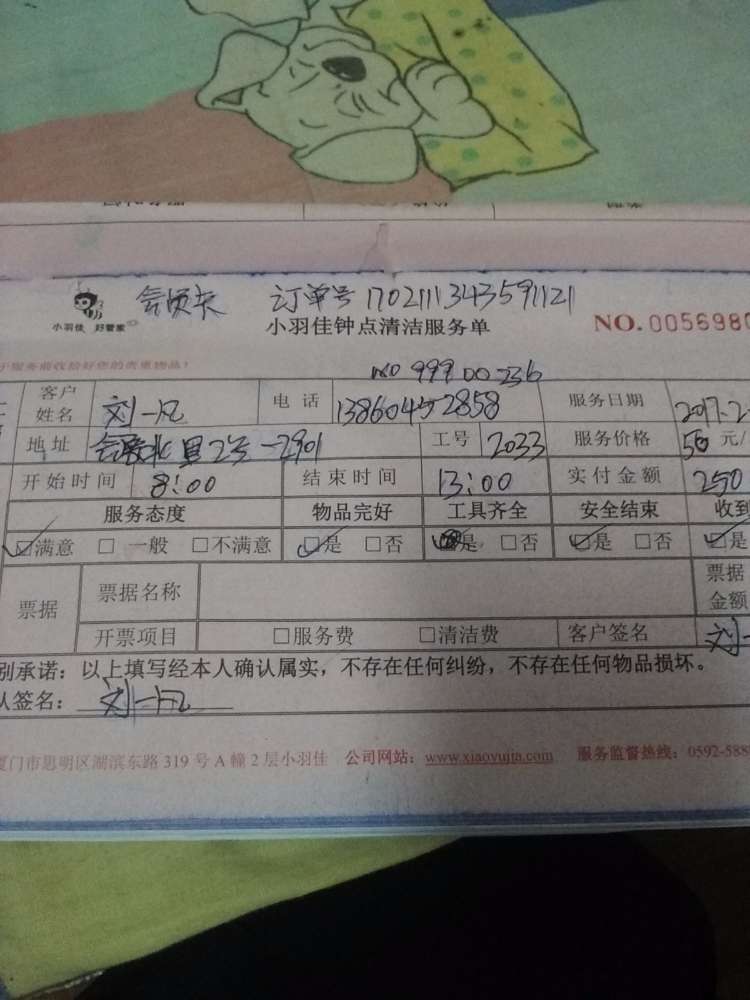 会员卡 订单号 1702111343591121
小羽佳 好管家
小羽佳钟点清洁服务单 NO. 0056980
服务前收拾好您的贵重物品!
NO 99900236
客户姓名 刘一凡 电话 服务日期 2017.2
地址 北里2号-2901 工号 2033 服务价格 50 元/
开始时间 8:00 结束时间 13:00 实付金额 250
服务态度 物品完好 工具齐全 安全结束 收到
☑满意 □一般 □不满意 ☑是 □否 ☑是 □否 ☑是 □否 ☑是
票据 票据名称 票据金额
开票项目 □服务费 □清洁费 客户签名 刘一
别承诺:以上填写经本人确认属实,不存在任何纠纷,不存在任何物品损坏。
人签名: 刘一凡
厦门市思明区湖滨东路 319 号 A 幢 2 层小羽佳 公司网站:www.xiaoyujia.com 服务监督热线:0592-588